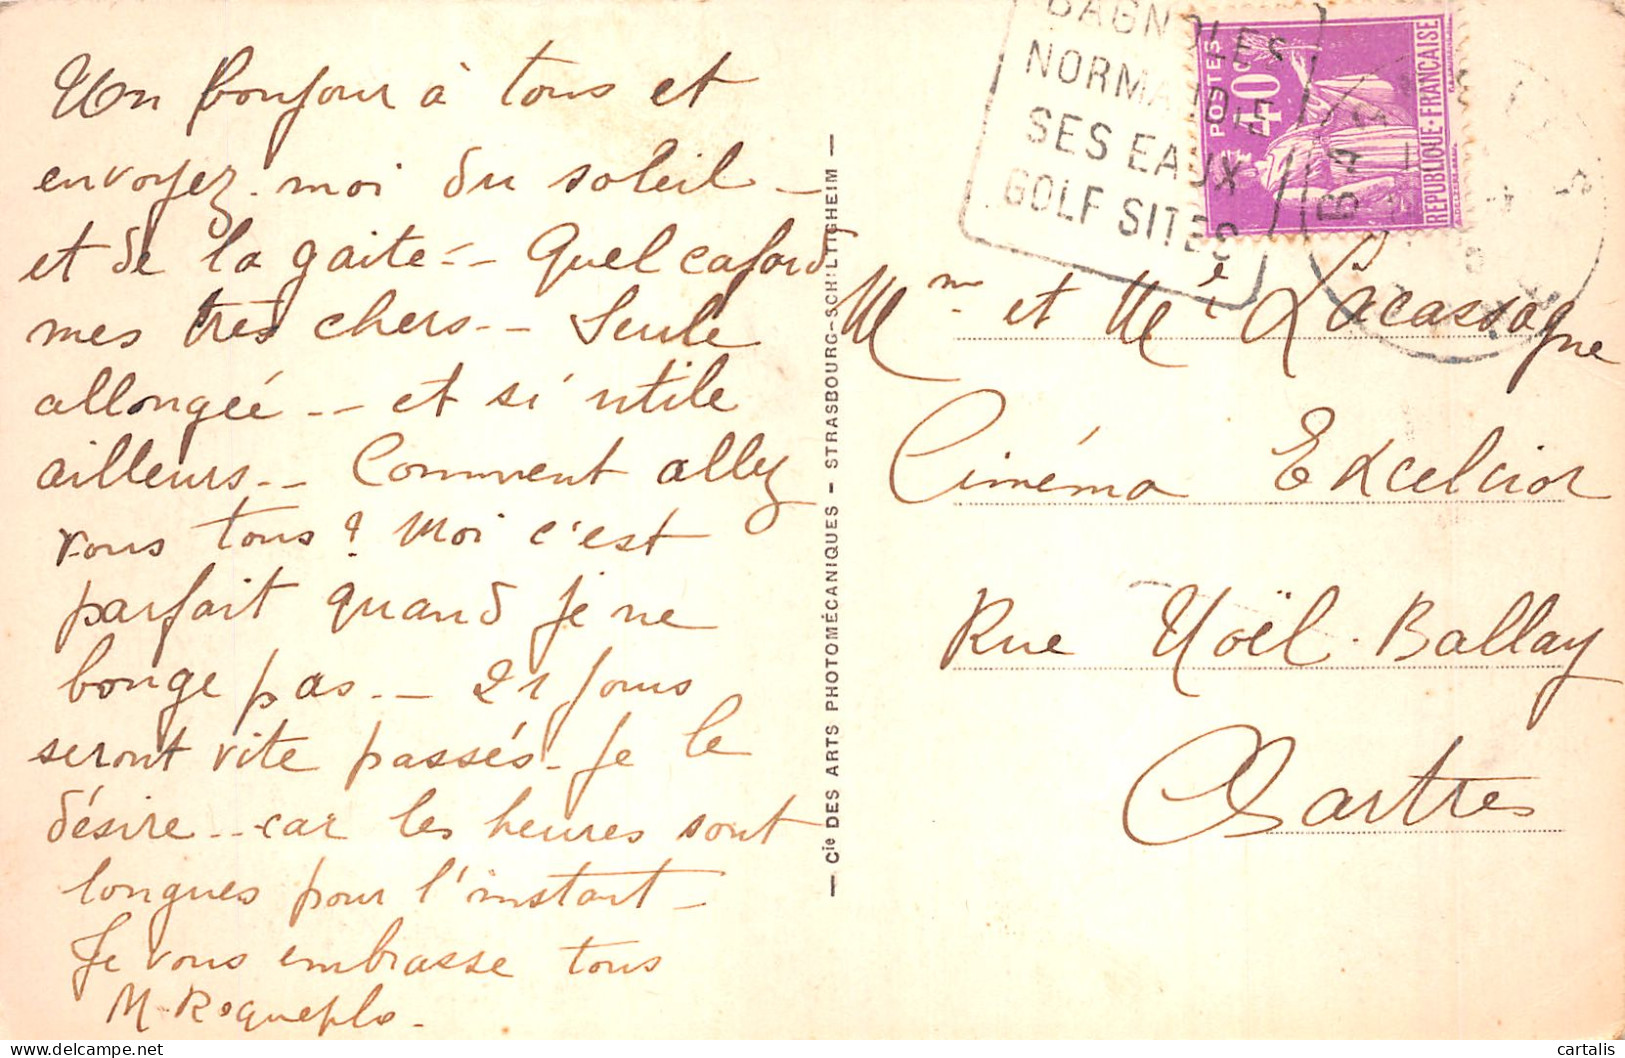 Un bonjour à tous et
envoyez-moi du soleil -
et de la gaité - - Quel cafard
mes très chers - - Seule
allongée - - et si utile
ailleurs - - Comment allez
vous tous ? Moi c'est
parfait quand je ne
bouge pas - - 21 jours
seront vite passés - Je le
désire - - car les heures sont
longues pour l'instant -
Je vous embrasse tous
M. Roqueplo -
— Cie DES ARTS PHOTOMÉCANIQUES - STRASBOURG-SCHILTIGHEIM —
BAGNOLES
NORMANDIE
SES EAUX
GOLF SITES
POSTES
40c
REPUBLIQUE-FRANÇAISE
Mme et Mr Lacassagne
Cinéma Excelcior
Rue Noël-Ballay
Chartres
cartalis